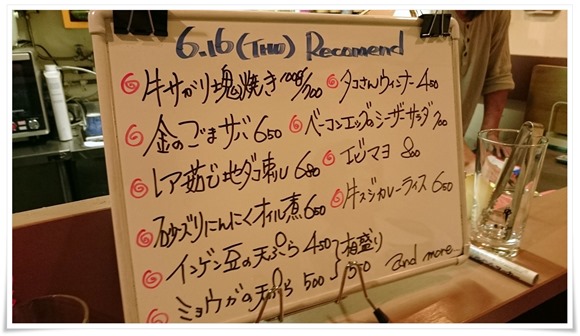 6.16(THU) Recomend
牛サガリ塊焼き 100g/700
金のごまサバ 650
レア茹で地ダコ刺し 680
砂ズリにんにくオイル煮 650
インゲン豆の天ぷら 450
ミョウガの天ぷら 500
相盛り
550
タコさんウィンナー 450
ベーコンエッグのシーザーサラダ 700
エビマヨ 800
牛スジカレーライス 650
and more